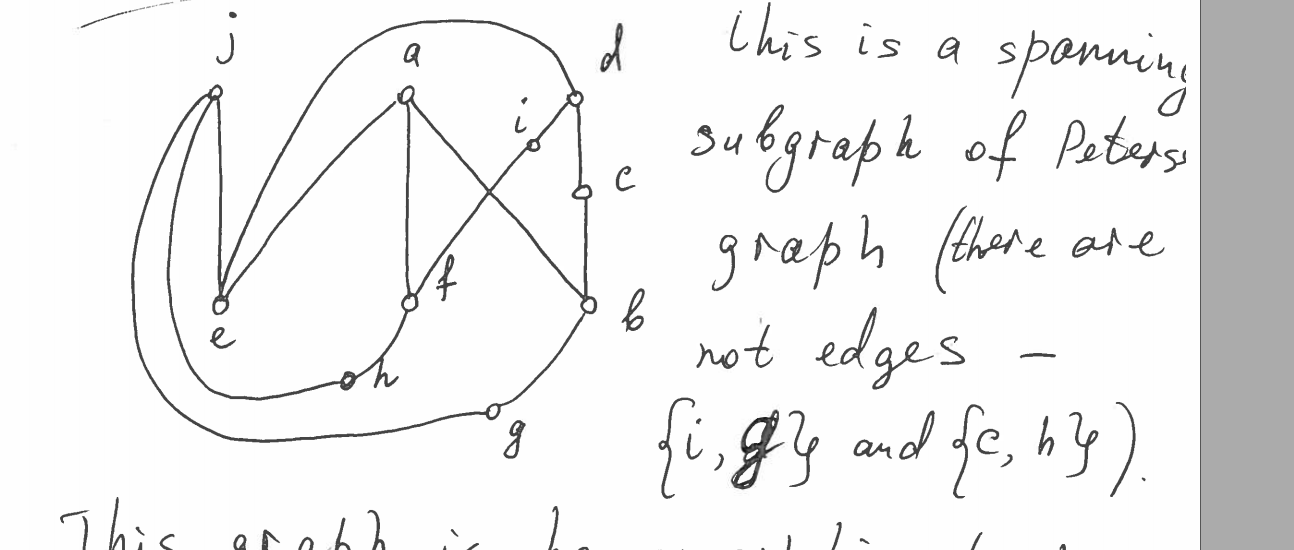 j
a
d
i
c
f
b
e
h
g
this is a spanning
subgraph of Peters
graph (there are
not edges –
{i, g} and {c, h}).
This graph is